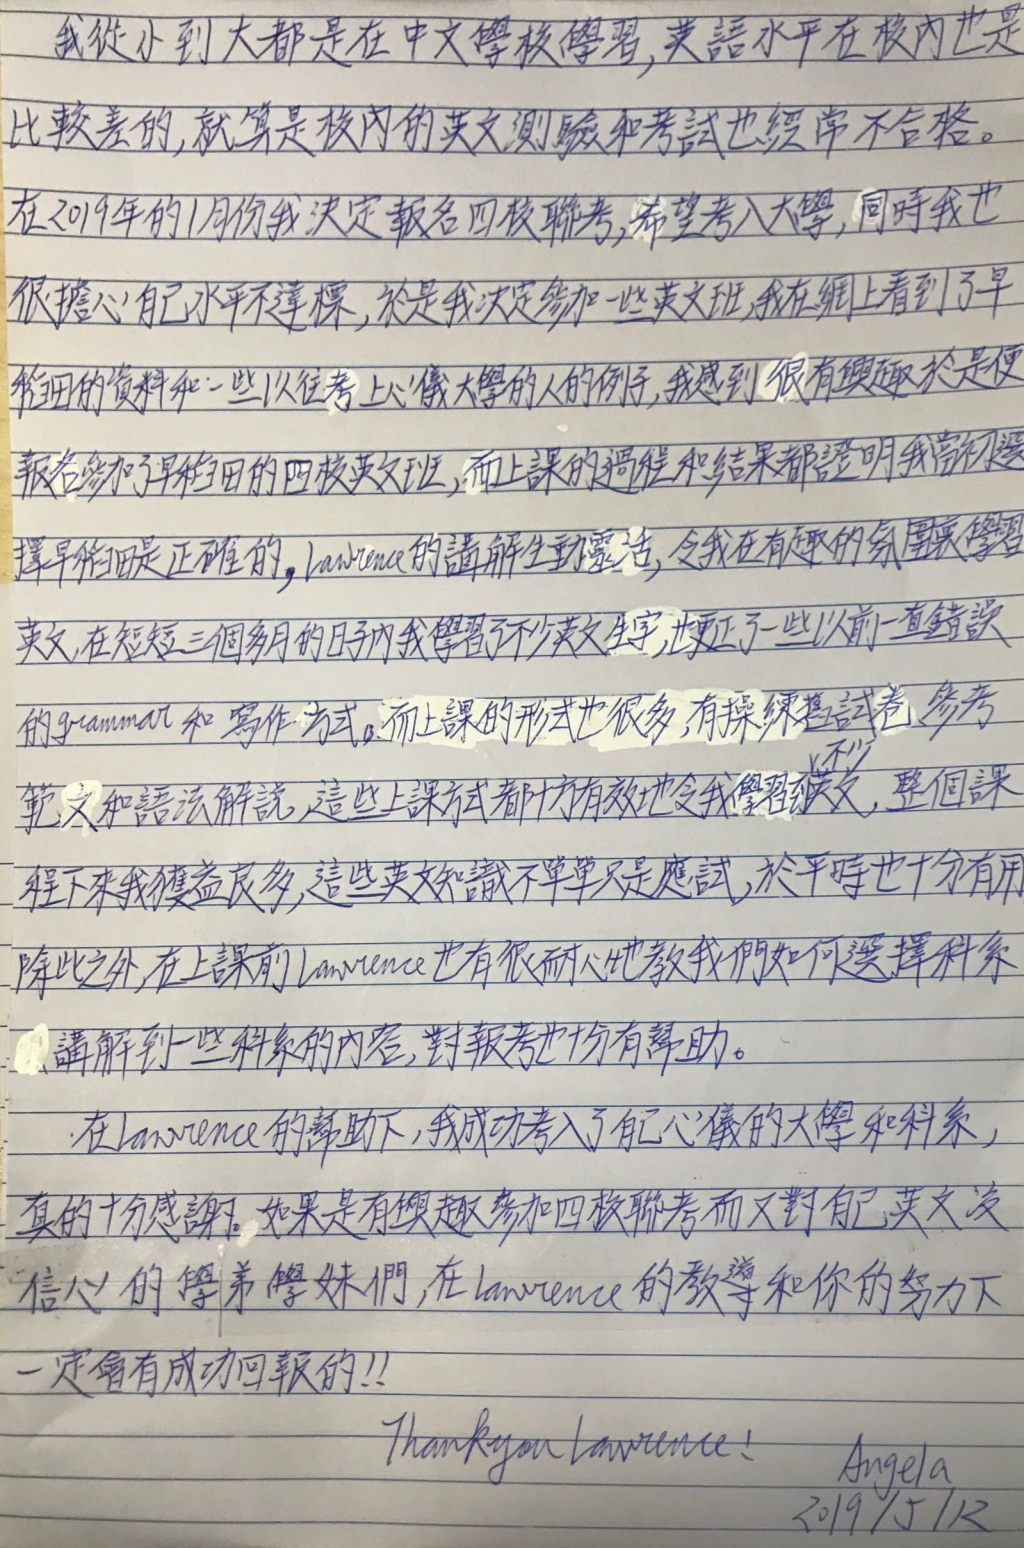 我從小到大都是在中文學校學習,英語水平在校內也是
比較差的,就算是校內的英文測驗和考試也經常不合格。
在2019年的1月份我決定報名四校聯考,希望考入大學,同時我也
很擔心自己水平不達標,於是我決定參加一些英文班,我在網上看到了早
稻田的資料和一些以往考上心儀大學的人的例子,我感到很有興趣於是便
報名參加了早稻田的四校英文班,而上課的過程和結果都證明我當初選
擇早稻田是正確的。Lawrence的講解生動靈活,令我在有趣的氛圍裏學習
英文,在短短三個多月的日子內我學習了不少英文生字,也更正了一些以前一直錯誤
的grammar和寫作方式。而上課的形式也很多,有操練舊試卷,參考
範文和語法解說,這些上課方式都十分有效地令我學習到不少英文,整個課
程下來我獲益良多,這些英文知識不單單只是應試,於平時也十分有用
除此之外,在上課前Lawrence也有很耐心地教我們如何選擇科系
講解到一些科系的內容,對報考也十分有幫助。
在Lawrence的幫助下,我成功考入了自己心儀的大學和科系,
真的十分感謝。如果是有興趣參加四校聯考而又對自己英文沒
信心的學弟學妹們,在Lawrence的教導和你的努力下
一定會有成功回報的!!
Thank you Lawrence!
Angela
2019/5/12